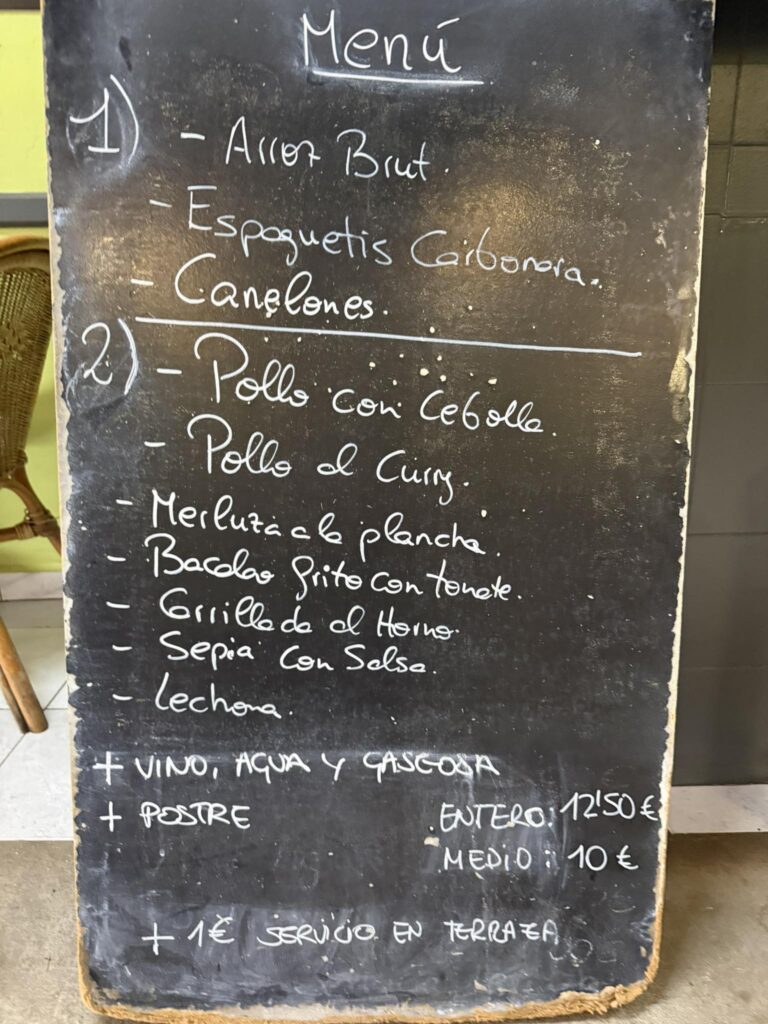 Menú
1) - Arroz Brut.
- Espaguetis Carbonara.
- Canelones.
2) - Pollo con Cebolla.
- Pollo al Curry.
- Merluza a la plancha.
- Bacalao frito con tomate.
- Carrillada al Horno.
- Sepia con Salsa.
- Lechona.
+ VINO, AGUA Y GASEOSA
+ POSTRE ENTERO: 12'50 €
MEDIO: 10 €
+ 1€ SERVICIO EN TERRAZA